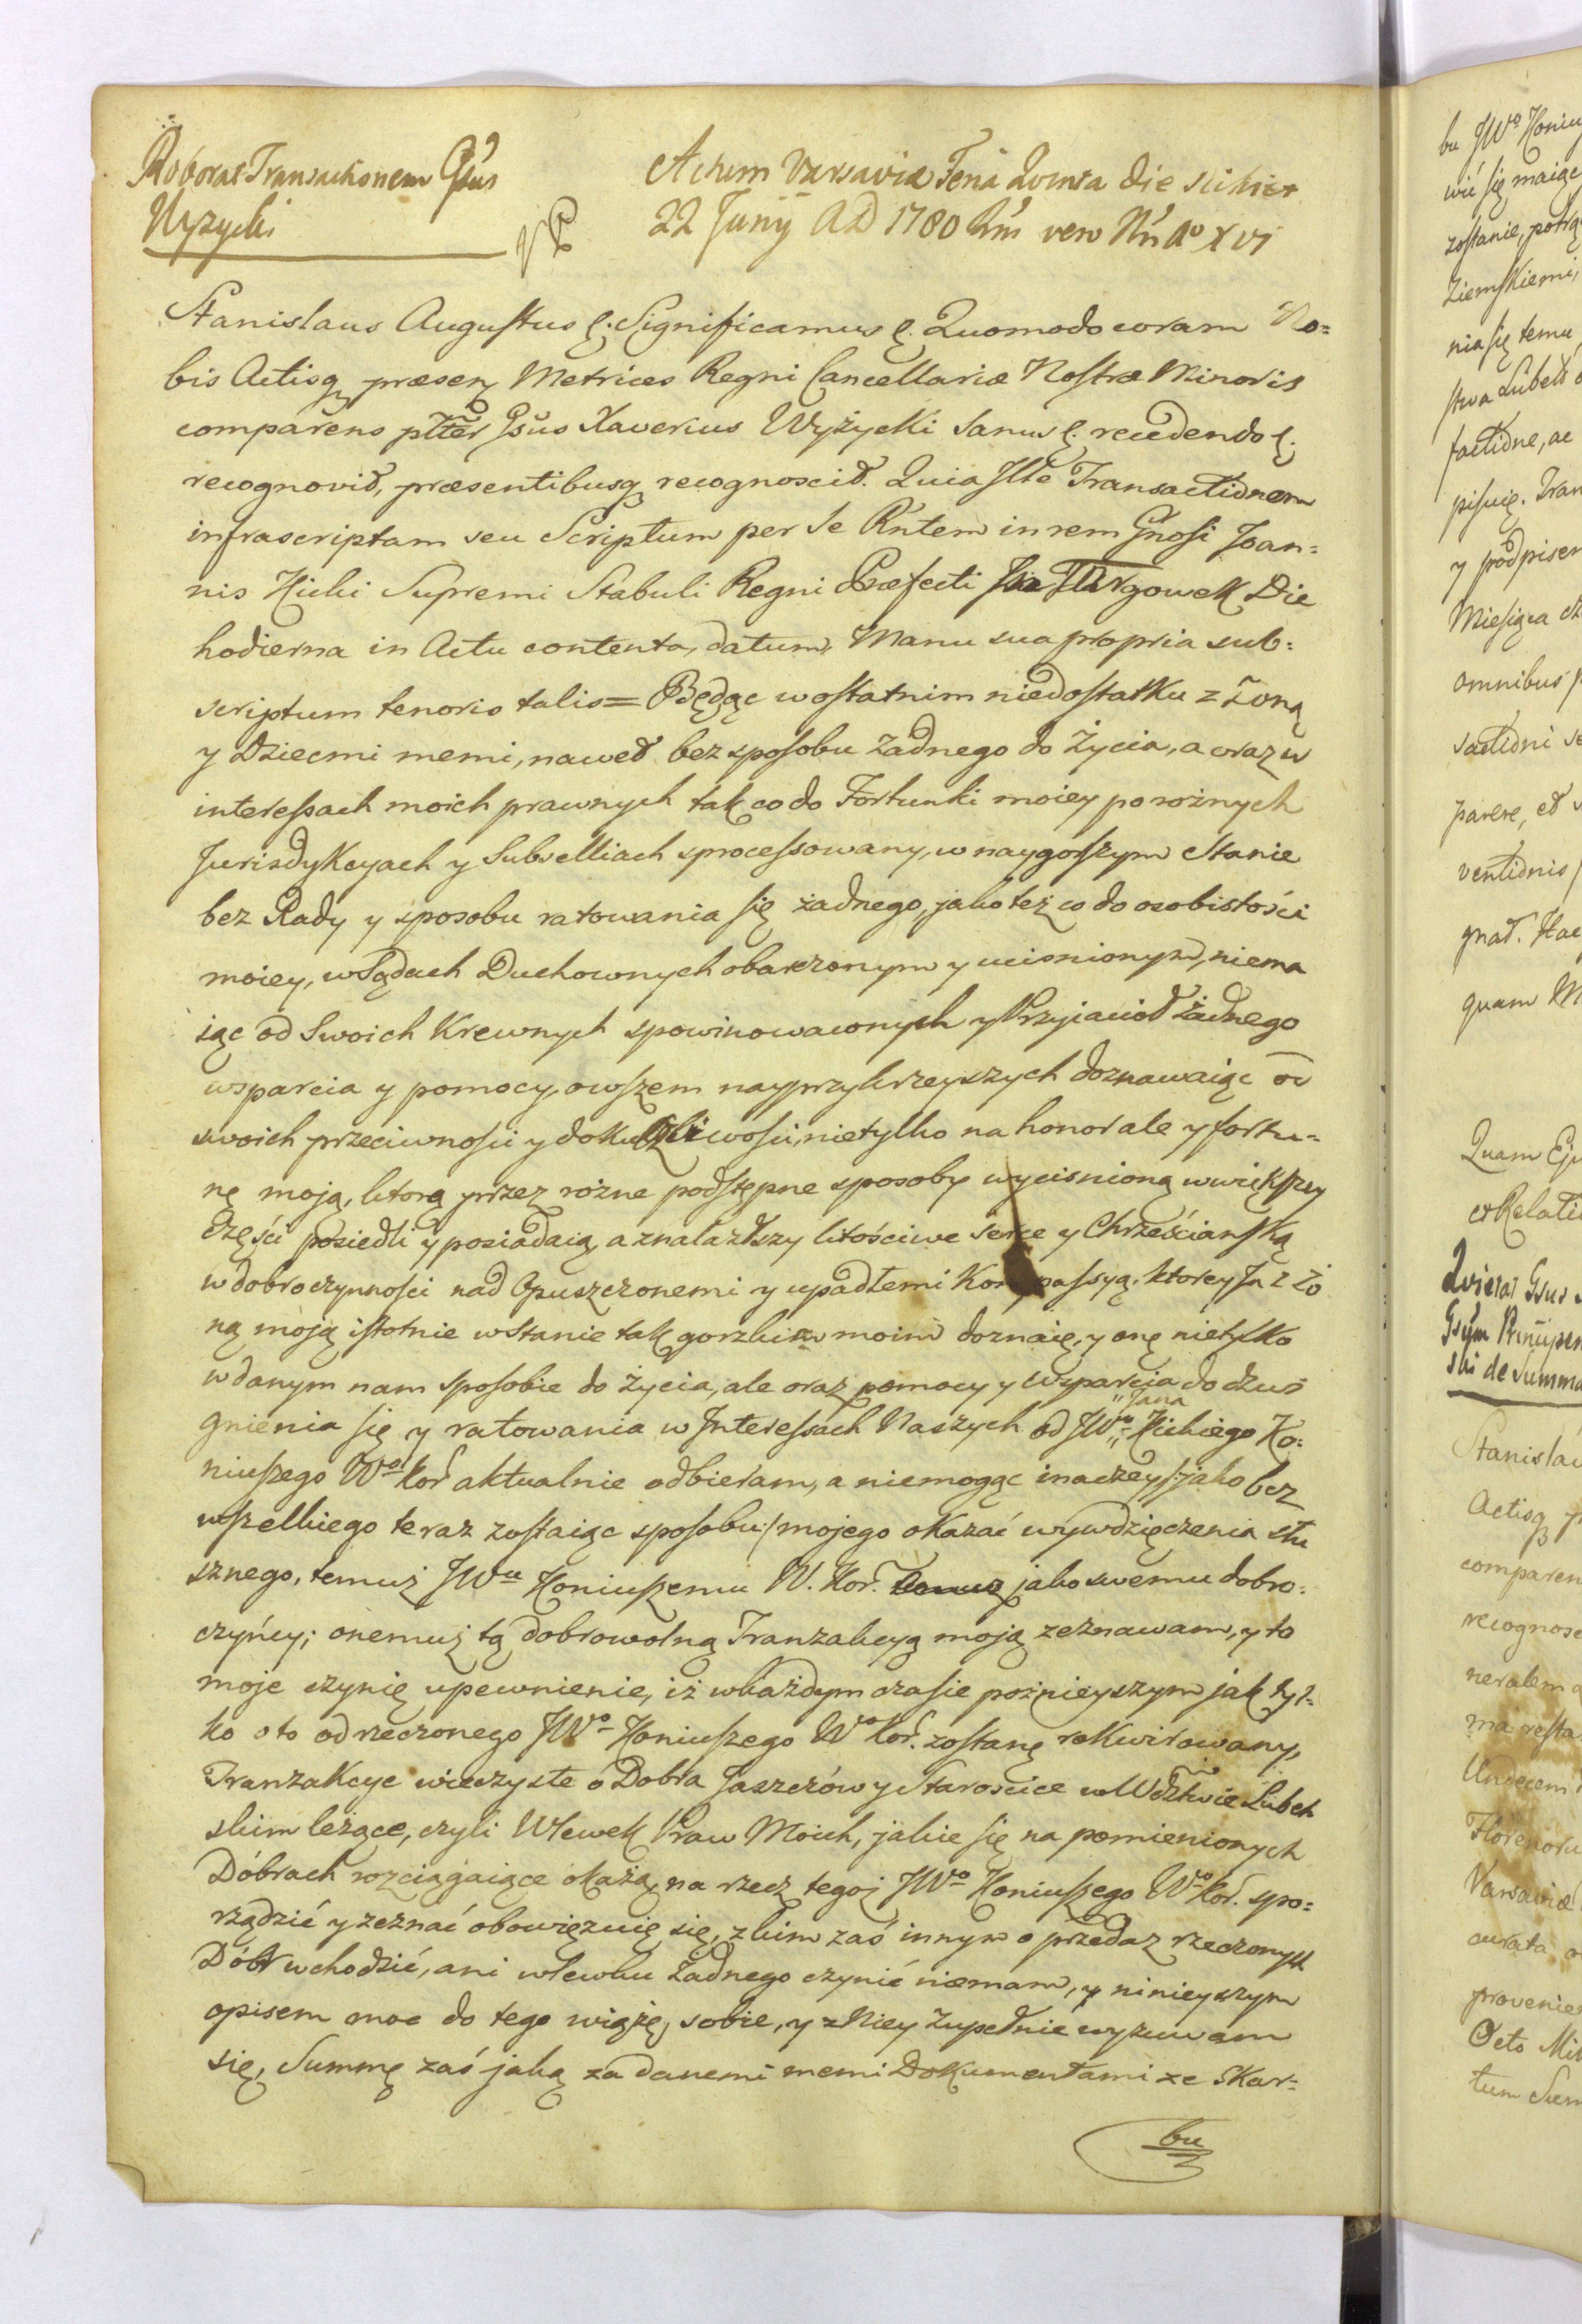 Roborat Transactionem Gsus
Wyzycki
Actum Varsaviæ Feria Quinta die scilicet
22 Junij AD 1780 Rm̃ vero Nr̃i Ao XVI
Stanislaus Augustus &. Significamus &. Quomodo coram No=
bis Actisq præsen Metrices Regni Cancellariæ Nostræ Minoris
comparens pltter Gsus Xaverius Wyżycki Sanus &. recedendo &.
recognovit, præsentibusq recognoscit. Quia Ille Transactionem
infrascriptam seu Scriptum per Se Rntem in rem Gnosi Joan=
nis Kicki Supremi Stabuli Regni Præfecti Die
hodierna in Actu contenta, datum, Manu sua propria sub=
scriptum tenoris talis= Będąc w ostatnim niedostatku z Żoną
y Dziecmi memi, nawet bez sposobu żadnego do Życia, a oraz w
interessach moich prawnych tak co do Fortunki moiey po rożnych
Jurisdykcyach y Subselliach sprocessowany, w naygorszym Stanie
bez Rady y sposobu ratowania się żadnego, jako też co do osobistości
moiey, w Sądach Duchownych obarczonym y ucisnionym, niema
iąc od Swoich Krewnych spowinowaconych y Przyiacioł Żadnego
wsparcia y pomocy, owszem nayprzykrzeyszych doznawaiąc od
swoich przeciwnosci y dokuczliwosci, nietylko na honor ale y fortu=
nę moją, ktorą przez rożne podstępne sposoby wycisnioną w większey
części posiedli y posiadaią, a znalazłszy litościwe serce y Chrześciańską
w dobroczynnosci nad Opuszczonemi y upadłemi Kompassyą, ktorey Ja z Żo
ną moją istotnie w Stanie tak gorzkim moim doznaię, y onę nietylko
w danym nam sposobie do życia, ale oraz pomocy y wsparcia do dzwi
gnienia się y ratowania w Interessach Naszych od JWo "Jana" Kickiego Ko=
niuszego Wo Kor aktualnie odbieram, a niemogąc inaczey /:jako bez
wszelkiego teraz zostaiąc sposobu:/ mojego okazać wywdzięczenia słu
sznego, temuż JWu Koniuszemu W. Kor. jako swemu dobro=
czyńcy; onemuż tą dobrowolną Tranzakcyą moją zeznawam, y to
moje czynię upewnienie, iż w każdym czasie poźnieyszym jak tyl=
ko o to od rzeczonego JWo Koniuszego Wo Kor. zostanę rekwirowany,
Tranzakcye wieczyste o Dobra Jaszczów y Starościce w Wdztwie Lubel
skim leżące, czyli Wlewek Praw Moich, jakie się na pomienionych
Dóbrach rozciągaiące okażą, na rzecz tegoż JWo Koniuszego Wo Kor. spo=
rządzić y zeznać obowięzuię się, z kim zaś innym o przedaz rzeczonych
Dóbr wchodzić, ani wlewku Żadnego czynić niemam, y ninieyszym
opisem moc do tego wiążę, sobie, y z Niey zupełnie wyzuwam
się, Summę zaś jaką za danemi memi Dokumentami ze Skar=
bu
bu JWo Koniu
wić się maiąc
zostanie, potrą
Ziemskiemi,
nia się temu
stwa Lubels
factione, ac
pisuię. Tran
y podpisem
Miesiąca
omnibus
sactioni se
parere, et
ventionis
gnat. Hac
quam M
Quam Ej
Relati
Quietat Gsus
Gsum Principem
ski de Summa
Stanislau
Actisq
comparen
recognosc
neralem
ma resta
Undecim
Florenoru
Varsaviæ
curata
provenien
Octo Mil
tum Sum